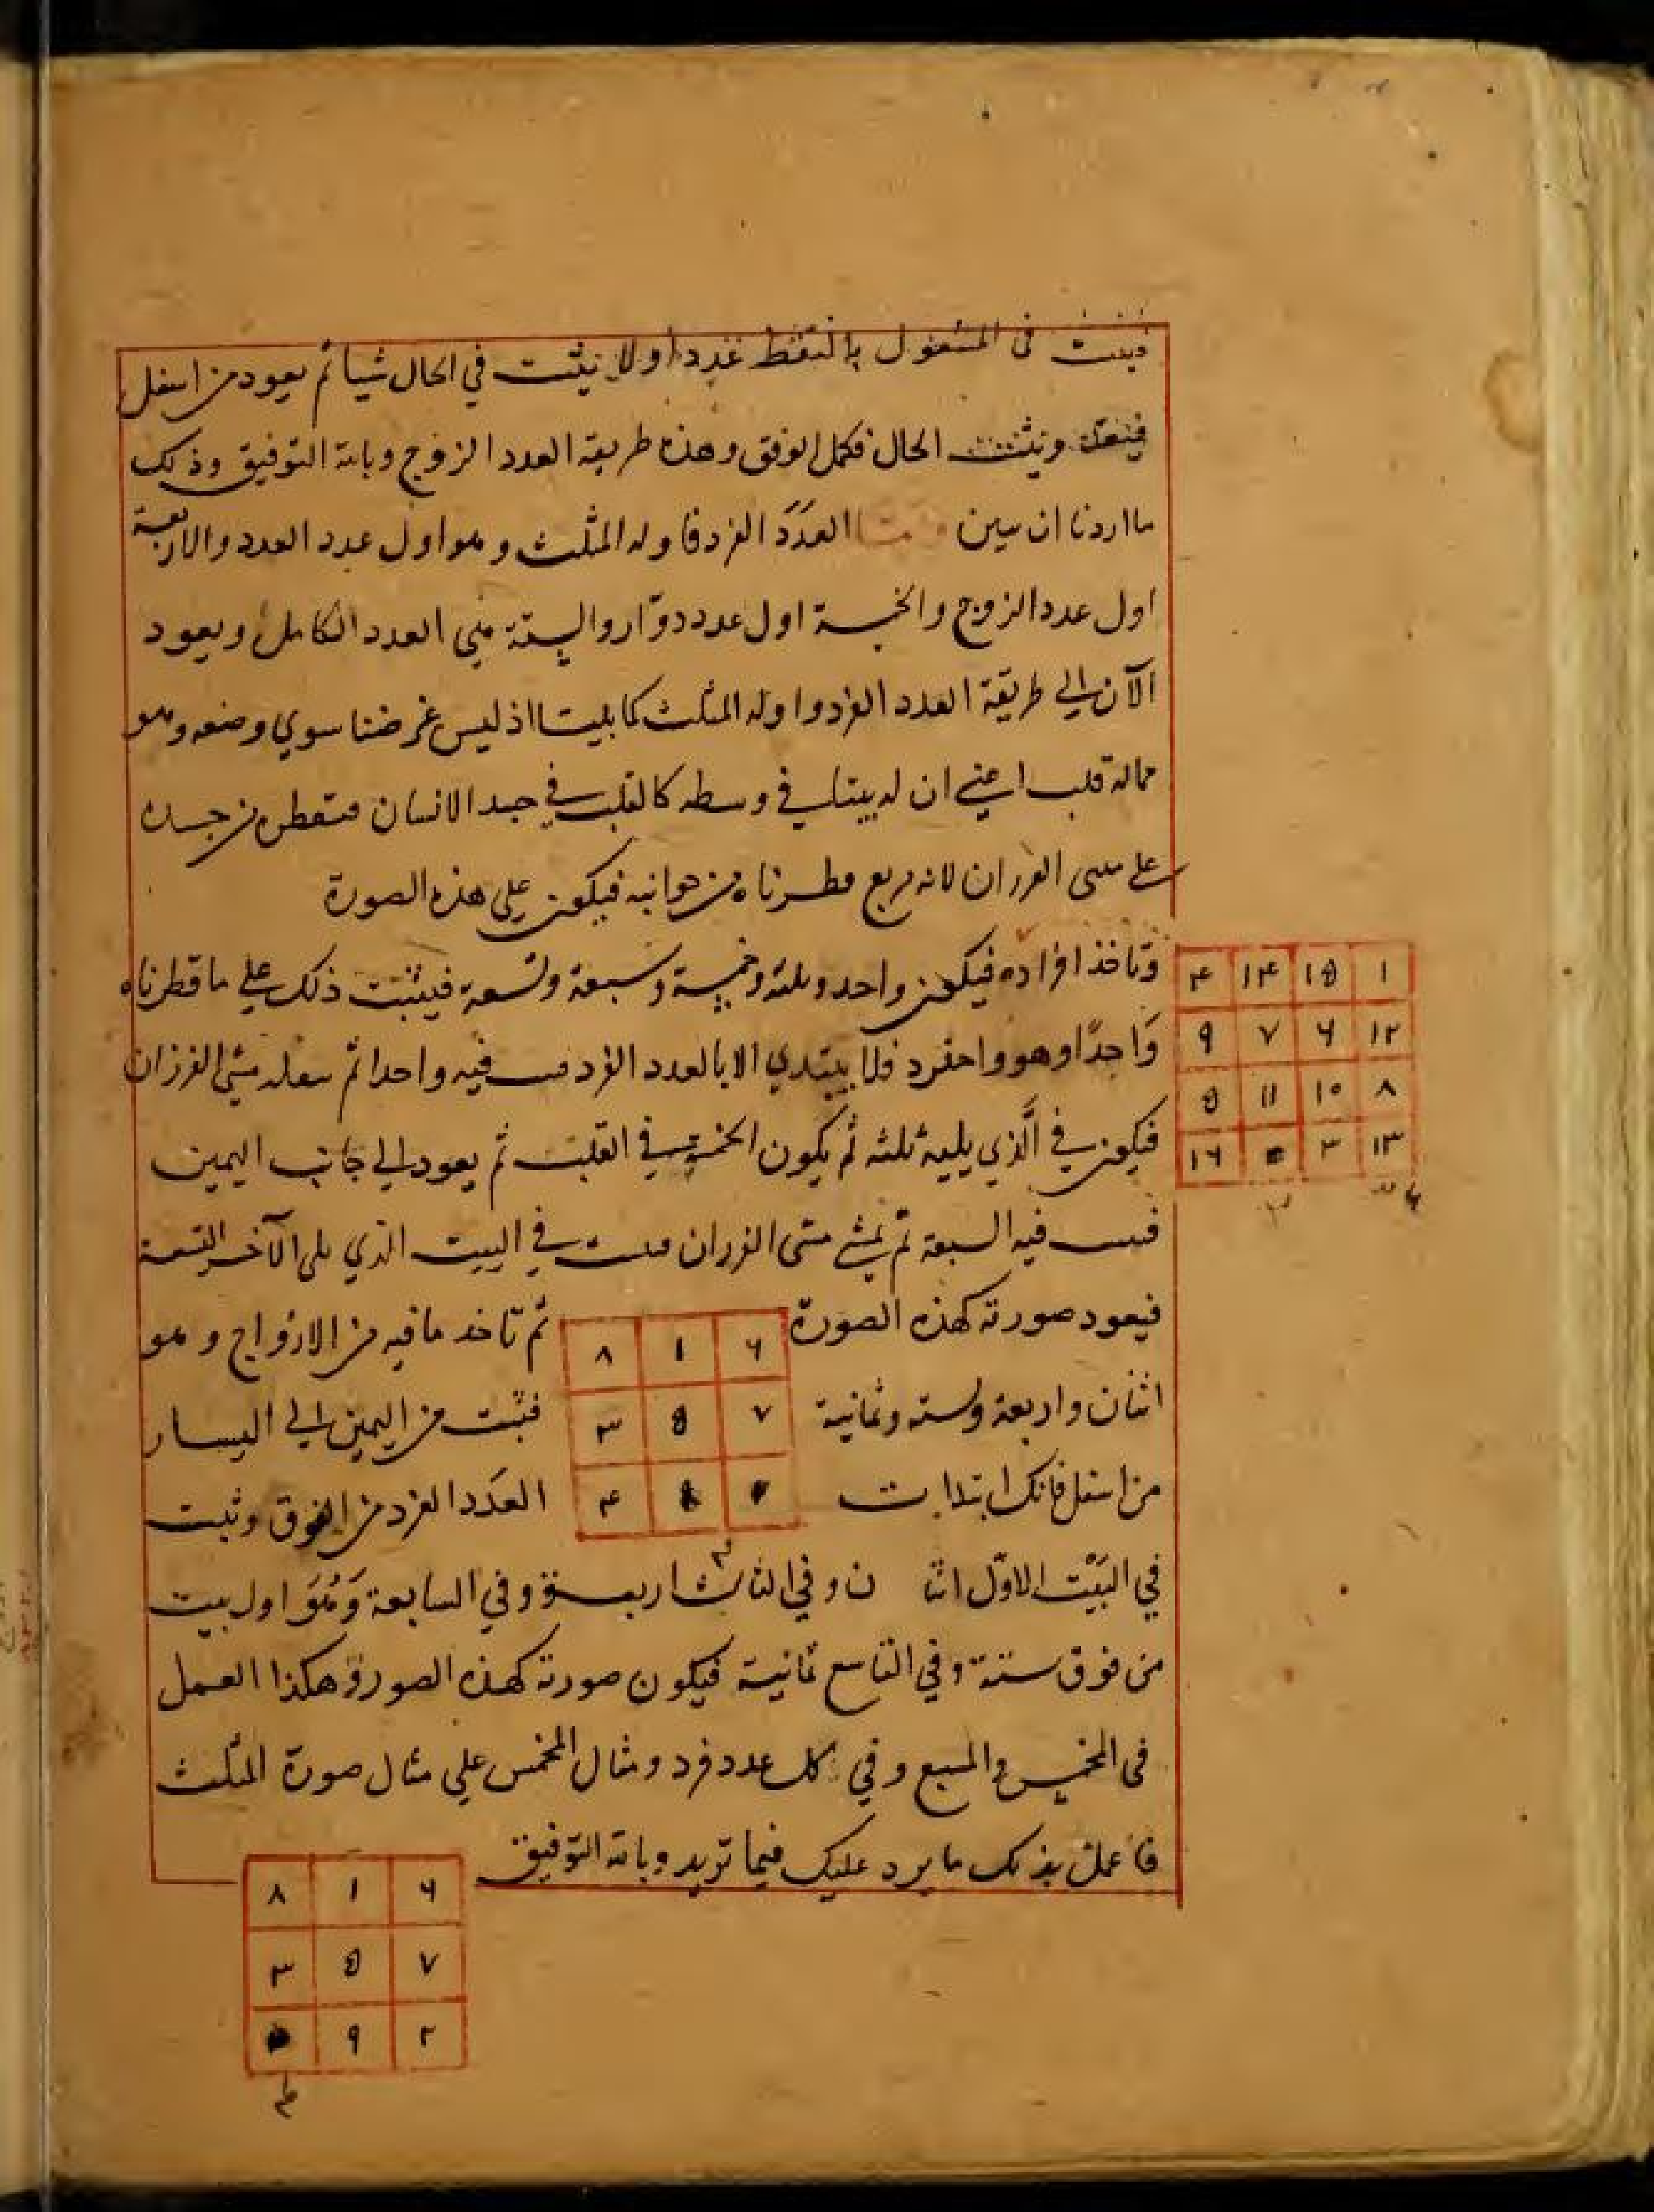 في المشغول بالنقط عددا ولا يثبت في الحال شيا ثم يعود من اسفل
ويثبت الحال فكمل الوفق وهذه طريقة العدد الزوج وبالله التوفيق وذلك
ما اردنا ان نبين العدد الفرد فاوله المثلث وهو اول عدد العدد والاربعة
اول عدد الزوج والخمسة اول عدد دوّار والستة هي العدد الكامل ويعود
الآن الي طريقة العدد الفرد واوله المثلث كما بليت اذ ليس غرضنا سوي وضعه وهو
مماله قلب اعني ان له بيتا في وسطه كالقلب في جسد الانسان من جسده
على الفرزان لانه مربع من جوانبه فيكون على هذه الصورة
وتاخذ افراده فيكون واحد وثلثة وخمسة وسبعة وتسعة فيثبت ذلك علي ما قطرناه
١ ١٥ ١٤ ٤
١٢ ٦ ٧ ٩
٨ ١٠ ١١ ٥
١٣ ٣ ١٦
واحدًا وهو واحد فرد فلا يبتدي الا بالعدد الفرد فيه واحدا ثم مشي الفرزان
فيكون في الَّذي يليه ثلثه ثم يكون الخمسة في القلب ثم يعود الي جانب اليمين
فيه السبعة ثم يمشي مشى الفرزان في البيت الذي يلي الآخر التسعة
فيعود صورته كهذه الصورة ثم تاخد ما فيه من الازواج وهو
٦ ١ ٨
٧ ٥ ٣
٤
اثنان واربعة وسته وثمانية فتثبت من اليمين الي اليسار
من اسفل فانك ابتدات العدد الفرد من الفوق وثبت
في البَيْت الاوّل اثنان وفي الثالث اربعة وفي السابعة وَهُوَ اول بيت
من فوق ستة وفي التاسع ثمانية فيكون صورته كهذه الصورة وهكذا العمل
فى المخمس والمسبع وفي كل عدد فرد ومثال المخمس علي مثال صورة المثلث
فاعمل بذلك ما يرد عليك فيما تريد وبالله التوفيق
٦ ١ ٨
٧ ٥ ٣
٢ ٩
٤